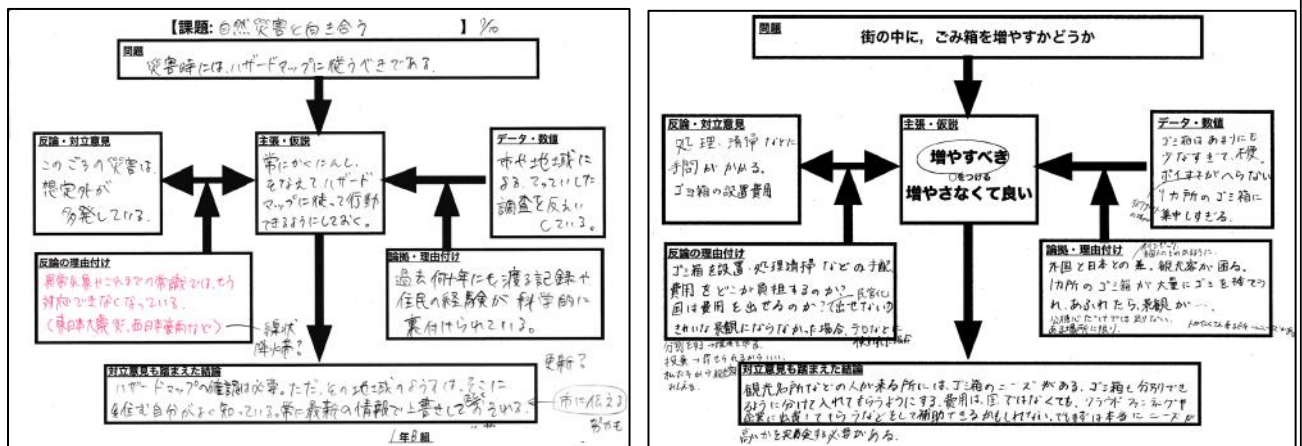 【課題: 自然災害と向き合う 】
問題
災害時には、ハザードマップに従うべきである。
反論・対立意見
このごろの災害は、
想定外が
多発している.
主張・仮説
常にかくにんし、
そなえて、ハザード
マップに従って行動
できるようにしておく。
データ・数値
市や地域に
よる、てっていした
調査を反えい
している。
反論の理由付け
異常気象やこれまでの常識では、もう
対応できなくなっている.
(東日本大震災、西日本豪雨など)
線状
降水帯?
論拠・理由付け
過去何十年にも渡る記録や
住民の経験が科学的に
裏付けられている。
更新?
対立意見も踏まえた結論
ハザードマップの確認は必要。ただ、その地域のようすは、そこに
住む自分がよく知っている。常に最新の情報で上書きして
市に伝える
1年B組
問題
街の中に,ごみ箱を増やすかどうか
反論・対立意見
処理・清掃などに
手間がかかる。
ゴミ箱の設置費用
主張・仮説
増やすべき
○をつける
増やさなくて良い
データ・数値
ゴミ箱はあまりにも
少なすぎて、不便.
ポイすてがへらない
1カ所のゴミ箱に
集中しすぎる.
反論の理由付け
ゴミ箱を設置・処理清掃などの手配、
費用をどこが負担するのか?
民営化
国は費用を出せるのか?
きれいな景観にならなかった場合、テロなどに
論拠・理由付け
外国と日本との差。観光客が困る。
1カ所のゴミ箱が大量にゴミを捨てら
れ、あふれたら、景観が…
対立意見も踏まえた結論
観光名所などの人が来る所には、ゴミ箱のニーズがある。ゴミ箱も分別でき
るように分けて入れてもらうようにする。費用は、国ではなくても、クラウドファンディングや
企業に出資してもらうなどとして補助できるかもしれない。でもまずは本当にニーズが
高いかを実験する必要がある.